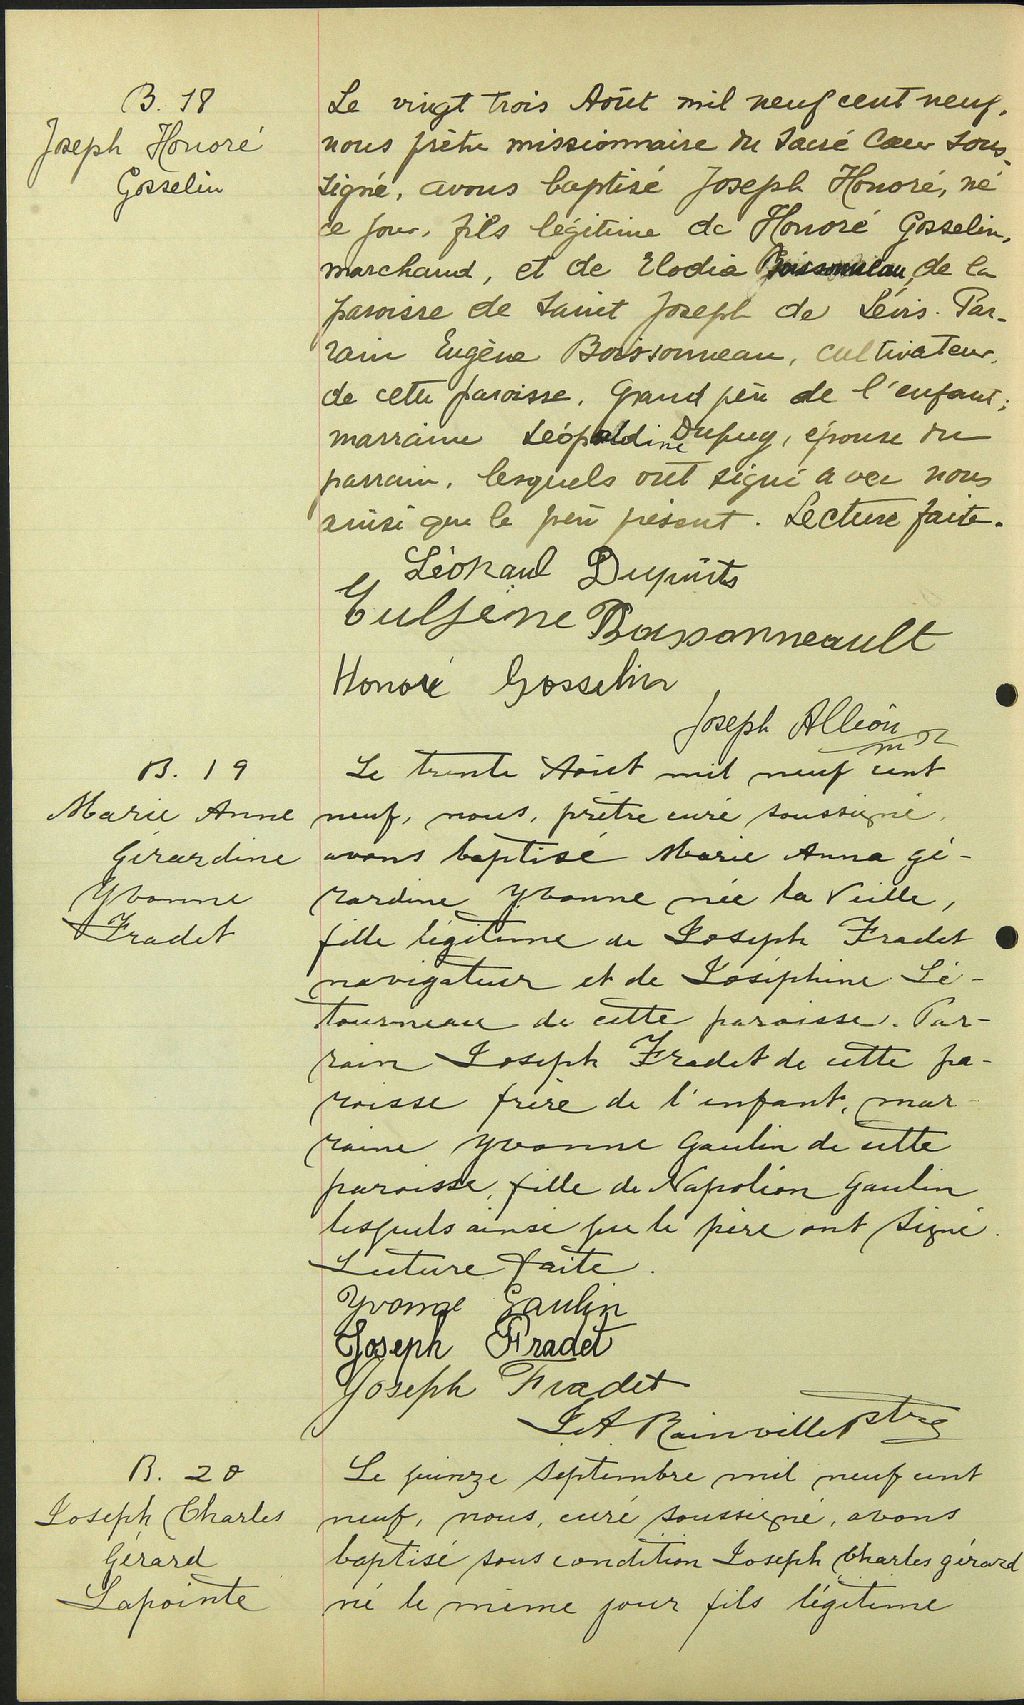 B. 18
Joseph Honoré
Gosselin
Le vingt trois Août mil neuf cent neuf,
nous prêtre missionnaire du Sacré Cœur sous-
signé, avons baptisé Joseph Honoré, né
ce jour, fils légitime de Honoré Gosselin,
marchand, et de Elodia Boissonneau, de la
paroisse de Saint Joseph de Lévis. Par-
rain Eugène Boissonneau, cultivateur,
de cette paroisse, Grand père de l'enfant;
marraine Léopoldine Dupuy, épouse du
parrain, lesquels ont signé avec nous
ainsi que le père présent. Lecture faite.
Dupuits
Boissonneault
Honoré Gosselin
Joseph Allion
B. 19
Marie Anne
Gérardine
Yvonne
Fradet
Le trente Août mil neuf cent
neuf, nous, prêtre curé soussigné,
avons baptisé Marie Anna Gé-
rardine Yvonne née la veille,
fille légitime de Joseph Fradet
navigateur et de Joséphine Lé-
tourneau de cette paroisse. Par-
rain Joseph Fradet de cette pa-
roisse frère de l'enfant, mar-
raine Yvonne Gaulin de cette
paroisse, fille de Napoléon Gaulin
lesquels ainsi que le père ont signé.
Lecture faite.
Yvonne Gaulin
Joseph Fradet
Joseph Fradet
J A Rainville Ptre
B. 20
Joseph Charles
Gérard
Lapointe
Le quinze Septembre mil neuf cent
neuf, nous, curé soussigné, avons
baptisé sous condition Joseph Charles gérard
né le même jour fils légitime